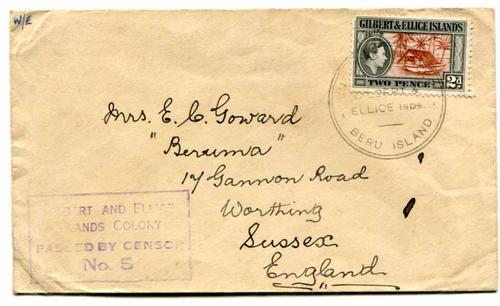 W/E
GILBERT & ELLICE ISLANDS
TWO PENCE
2d
ELLICE ISDS.
BERU ISLAND
Mrs. E. C. Goward
"Beruma"
17 Gannon Road
Worthing
Sussex
England
BERT AND ELLICE
ANDS COLONY
PASSED BY CENSOR
No. 5